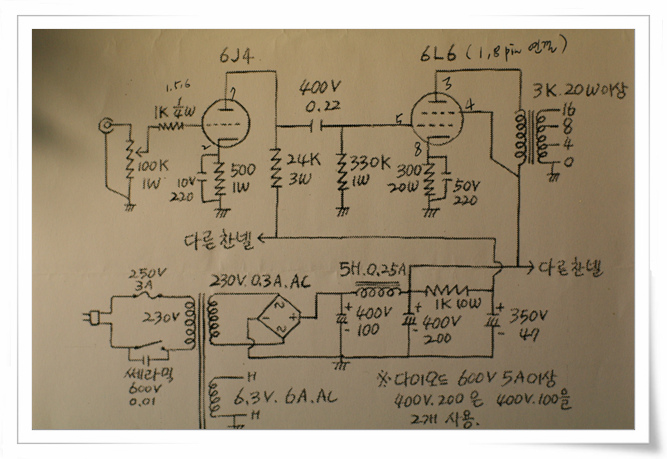 6J4
6L6 (1,8pin 연결)
1.5.6
7
400V
0.22
3
4
3K. 20W이상
16
8
4
0
1K 1/4W
5
2
8
100K
1W
10V
220
500
1W
24K
3W
330K
1W
300
20W
50V
220
다른찬넬
다른찬넬
250V
3A
230V. 0.3A. AC
5H. 0.25A
230V
2
2
+
-
+
-
400V
100
1K 10W
+
-
400V
200
+
-
350V
47
쎄라믹
600V
0.01
H
6.3V. 6A. AC
H
※ 다이오드 600V 5A이상
400V. 200은 400V. 100을
2개 사용.